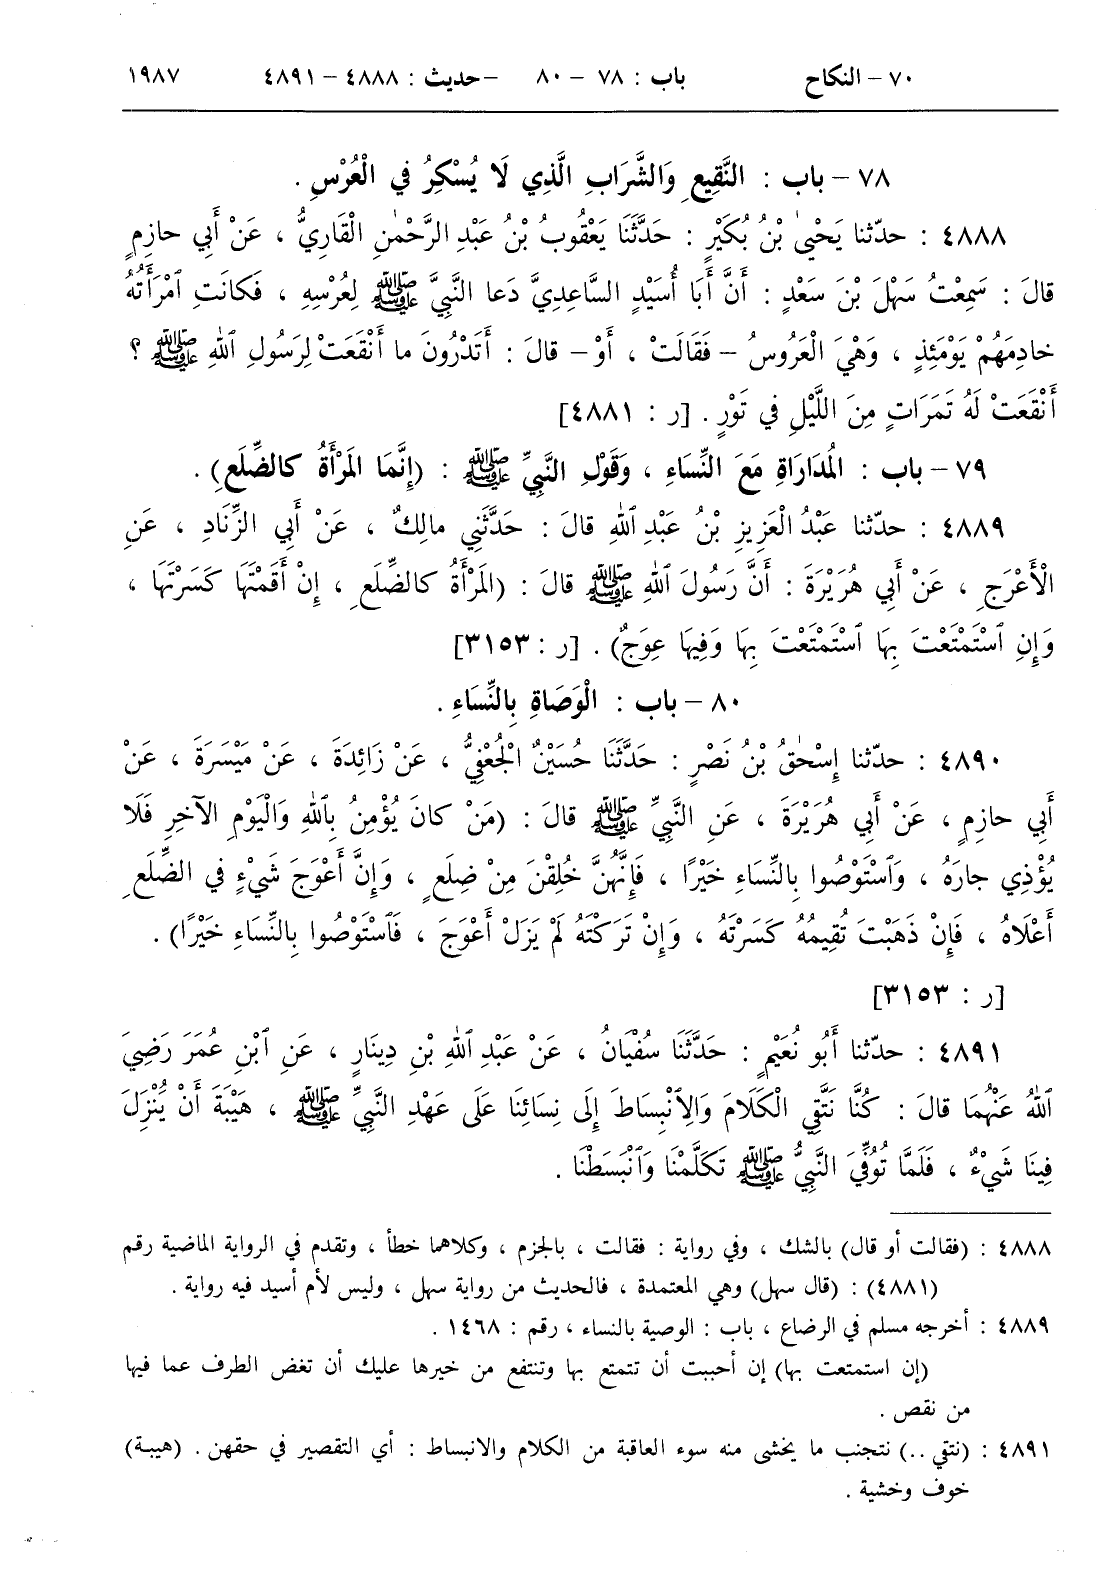 ٧٠ – النكاح باب : ٧٨ – ٨٠ – حديث : ٤٨٨٨ – ٤٨٩١ ١٩٨٧
٧٨ – باب : النَّقِيعِ وَالشَّرَابِ الَّذِي لَا يُسْكِرُ فِي الْعُرْسِ .
٤٨٨٨ : حدّثنا يَحْيَىٰ بْنُ بُكَيْرٍ : حَدَّثَنَا يَعْقُوبُ بْنُ عَبْدِ الرَّحْمٰنِ الْقَارِيُّ ، عَنْ أَبِي حازِمٍ
قالَ : سَمِعْتُ سَهْلَ بْنَ سَعْدٍ : أَنَّ أَبَا أُسَيْدٍ السَّاعِدِيَّ دَعا النَّبِيَّ ﷺ لِعُرْسِهِ ، فَكانَتِ ٱمْرَأَتُهُ
خادِمَهُمْ يَوْمَئِذٍ ، وَهْيَ الْعَرُوسُ – فَقَالَتْ ، أَوْ – قالَ : أَتَدْرُونَ ما أَنْقَعَتْ لِرَسُولِ ٱللهِ ﷺ ؟
أَنْقَعَتْ لَهُ تَمَرَاتٍ مِنَ اللَّيْلِ فِي تَوْرٍ . [ر : ٤٨٨١]
٧٩ – باب : الْمُدَارَاةِ مَعَ النِّسَاءِ ، وَقَوْلِ النَّبِيِّ ﷺ : (إِنَّمَا الْمَرْأَةُ كالضِّلَعِ) .
٤٨٨٩ : حدّثنا عَبْدُ الْعَزِيزِ بْنُ عَبْدِ ٱللهِ قالَ : حَدَّثَنِي مالِكٌ ، عَنْ أَبِي الزِّنَادِ ، عَنِ
الْأَعْرَجِ ، عَنْ أَبِي هُرَيْرَةَ : أَنَّ رَسُولَ ٱللهِ ﷺ قالَ : (الْمَرْأَةُ كالضِّلَعِ ، إِنْ أَقَمْتَهَا كَسَرْتَهَا ،
وَإِنِ ٱسْتَمْتَعْتَ بِهَا ٱسْتَمْتَعْتَ بِهَا وَفِيهَا عِوَجٌ) . [ر : ٣١٥٣]
٨٠ – باب : الْوَصَاةِ بِالنِّسَاءِ .
٤٨٩٠ : حدّثنا إِسْحٰقُ بْنُ نَصْرٍ : حَدَّثَنَا حُسَيْنٌ الْجُعْفِيُّ ، عَنْ زَائِدَةَ ، عَنْ مَيْسَرَةَ ، عَنْ
أَبِي حازِمٍ ، عَنْ أَبِي هُرَيْرَةَ ، عَنِ النَّبِيِّ ﷺ قالَ : (مَنْ كانَ يُؤْمِنُ بِٱللهِ وَالْيَوْمِ الآخِرِ فَلَا
يُؤْذِي جارَهُ ، وَٱسْتَوْصُوا بِالنِّسَاءِ خَيْرًا ، فَإِنَّهُنَّ خُلِقْنَ مِنْ ضِلَعٍ ، وَإِنَّ أَعْوَجَ شَيْءٍ فِي الضِّلَعِ
أَعْلَاهُ ، فَإِنْ ذَهَبْتَ تُقِيمُهُ كَسَرْتَهُ ، وَإِنْ تَرَكْتَهُ لَمْ يَزَلْ أَعْوَجَ ، فَٱسْتَوْصُوا بِالنِّسَاءِ خَيْرًا) .
[ر : ٣١٥٣]
٤٨٩١ : حدّثنا أَبُو نُعَيْمٍ : حَدَّثَنَا سُفْيَانُ ، عَنْ عَبْدِ ٱللهِ بْنِ دِينَارٍ ، عَنِ ٱبْنِ عُمَرَ رَضِيَ
ٱللهُ عَنْهُمَا قالَ : كُنَّا نَتَّقِي الْكَلَامَ وَالِٱنْبِسَاطَ إِلَى نِسَائِنَا عَلَى عَهْدِ النَّبِيِّ ﷺ ، هَيْبَةَ أَنْ يُنْزَلَ
فِينَا شَيْءٌ ، فَلَمَّا تُوُفِّيَ النَّبِيُّ ﷺ تَكَلَّمْنَا وَٱنْبَسَطْنَا .
٤٨٨٨ : (فقالت أو قال) بالشك ، وفي رواية : فقالت ، بالجزم ، وكلاهما خطأ ، وتقدم في الرواية الماضية رقم
(٤٨٨١) : (قال سهل) وهي المعتمدة ، فالحديث من رواية سهل ، وليس لأم أسيد فيه رواية .
٤٨٨٩ : أخرجه مسلم في الرضاع ، باب : الوصية بالنساء ، رقم : ١٤٦٨ .
(إن استمتعت بها) إن أحببت أن تتمتع بها وتنتفع من خيرها عليك أن تغض الطرف عما فيها
من نقص .
٤٨٩١ : (نتقي ..) نتجنب ما يخشى منه سوء العاقبة من الكلام والانبساط : أي التقصير في حقهن . (هيبة)
خوف وخشية .